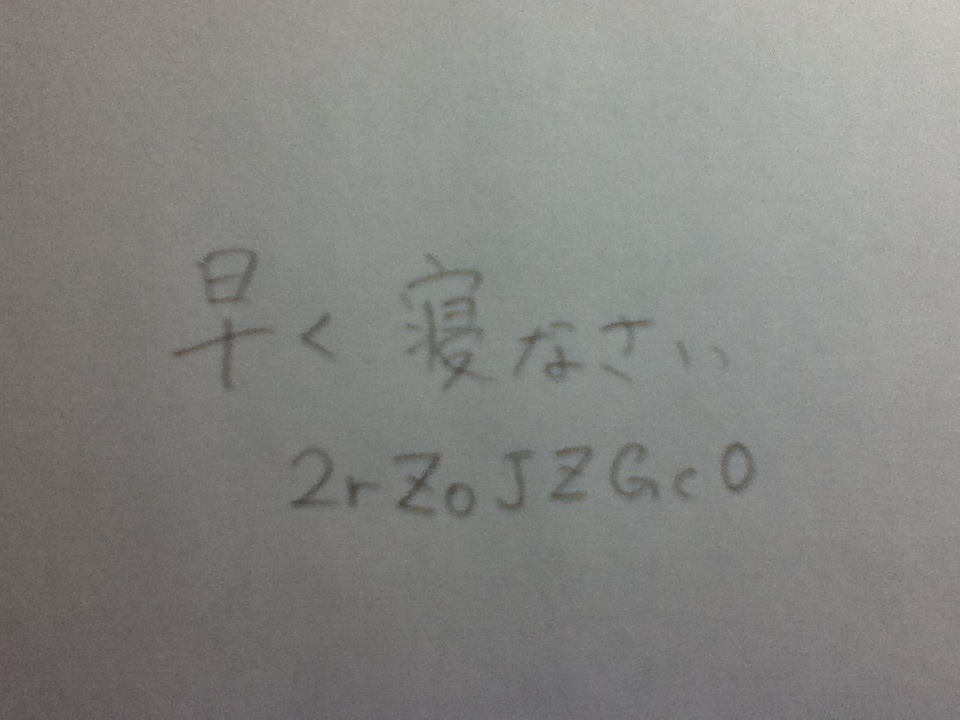 早く寝なさい
2rZoJZGc0